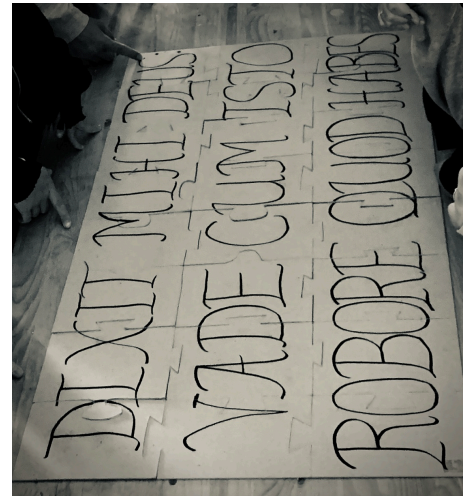 DIXIT MIHI DEUS
VADE CUM ISTO
ROBORE QUOD HABS